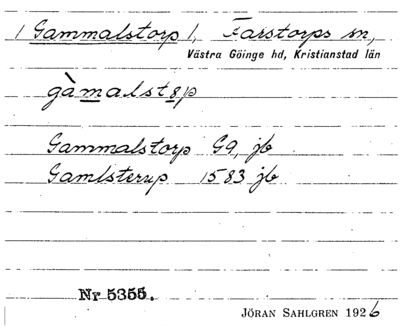 / Gammalstorp /, Farstorps sn,
Västra Göinge hd, Kristianstad län
gàmalstɵp
Gammalstorp G9, jb
Gamlsterup 1583 jb
Nr 5355.
JÖRAN SAHLGREN 1926